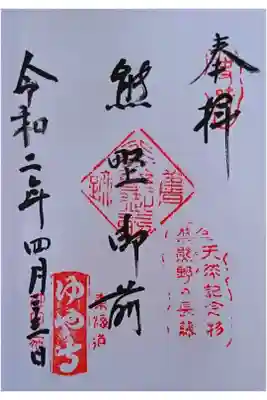 奉拝
天然記念物
熊野の長藤
熊野御前
東海道
令和二年四月
ゆや寺